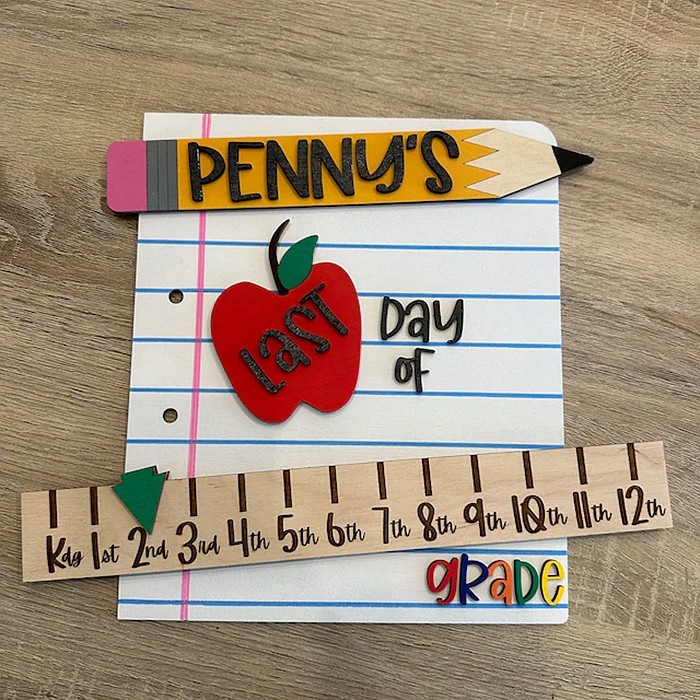 PENNY'S
Last
Day
of
Kdg 1st 2nd 3rd 4th 5th 6th 7th 8th 9th 10th 11th 12th
grade